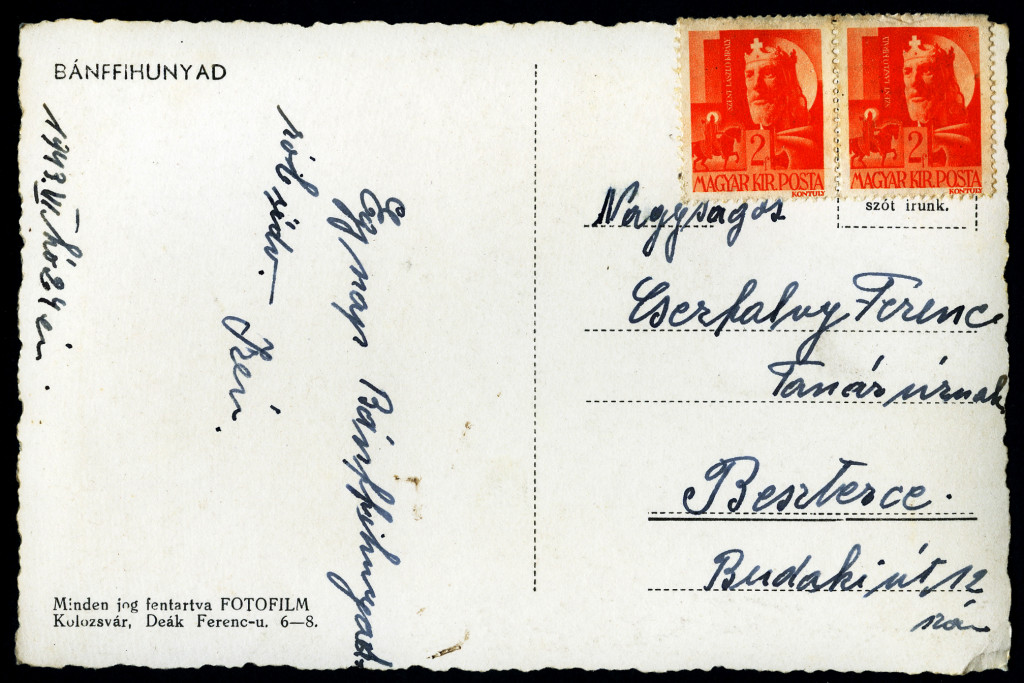 BÁNFFIHUNYAD
1943. VI. hó 24 én.
Egy nap Bánffihunyad
ról
Minden jog fentartva FOTOFILM
Kolozsvár, Deák Ferenc-u. 6—8.
SZENT LÁSZLÓ KIRÁLY
2f
MAGYAR KIR. POSTA
KONTULY
SZENT LÁSZLÓ KIRÁLY
2f
MAGYAR KIR. POSTA
KONTULY
szót írunk.
Nagyságos
Cserfalvy Ferenc
Tanár úrnak
Beszterce.
Budaki út 12
szám